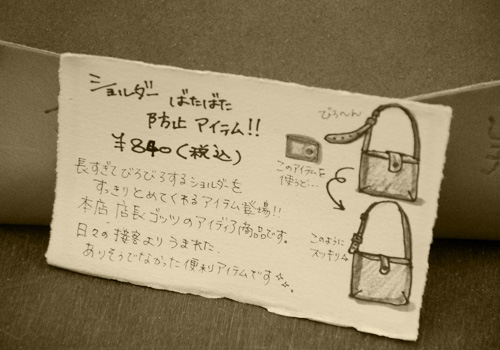 ショルダー ばたばた
防止 アイテム!!
¥840(税込)
長すぎてびろびろするショルダーを
すっきりとめてくれるアイテム登場!!
本店 店長ゴッツのアイディア商品です。
日々の接客よりうまれた、
ありそうでなかった便利アイテムです
びろ〜ん
このアイテムを
使うと…
このように
スッキリ